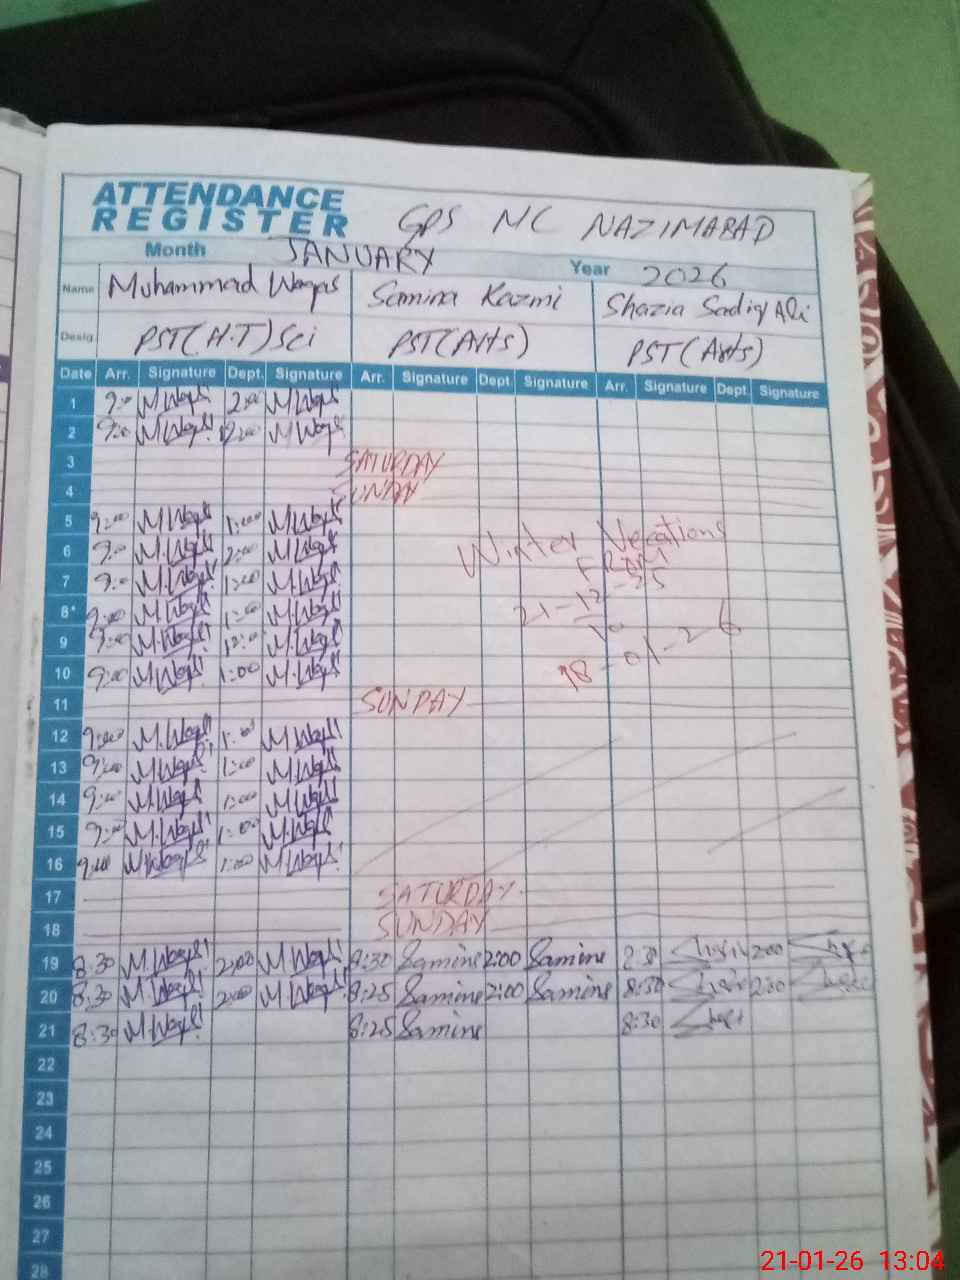 ATTENDANCE
REGISTER GPS NC NAZIMABAD
Month JANUARY Year 2026
Name Muhammad Waqas Samina Kazmi Shazia Sadiq Ali
Desig. PST(H.T)Sci PST(Arts) PST(Arts)
Date Arr. Signature Dept. Signature Arr. Signature Dept. Signature Arr. Signature Dept. Signature
1 9:00 M.Waqas 2:00 M.Waqas
2 9:00 M.Waqas 12:00 M.Waqas
3 SATURDAY
4 SUNDAY
5 9:00 M.Waqas 1:00 M.Waqas
6 9:00 M.Waqas 2:00 M.Waqas
7 9:00 M.Waqas 1:00 M.Waqas
8 9:00 M.Waqas 1:00 M.Waqas
9 9:00 M.Waqas 12:00 M.Waqas
10 9:00 M.Waqas 1:00 M.Waqas
Winter Vecations
FROM
21-12-25
To
18-01-26
11 SUNDAY
12 9:00 M.Waqas 1:00 M.Waqas
13 9:00 M.Waqas 1:00 M.Waqas
14 9:00 M.Waqas 1:00 M.Waqas
15 9:00 M.Waqas 1:00 M.Waqas
16 9:00 M.Waqas 1:00 M.Waqas
17 SATURDAY
18 SUNDAY
19 8:30 M.Waqas 2:00 M.Waqas 8:30 Samina 2:00 Samina 8:30 2:00
20 8:30 M.Waqas 2:00 M.Waqas 8:25 Samina 2:00 Samina 8:30
21 8:30 M.Waqas 8:25 Samina 8:30
22
23
24
25
26
27
28
21-01-26 13:04